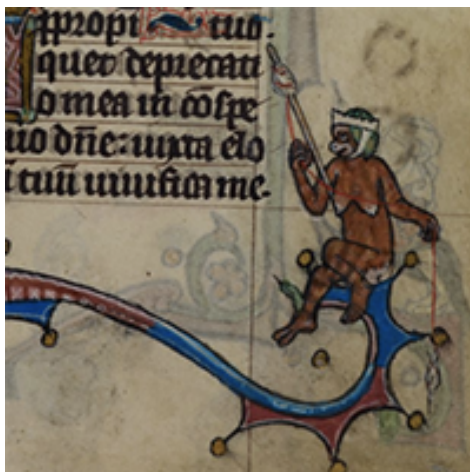 ppropi tuo.
quet deprecati
o mea in cōspe
uo dn̄e: iuxta elo
tuū uiuifica me.